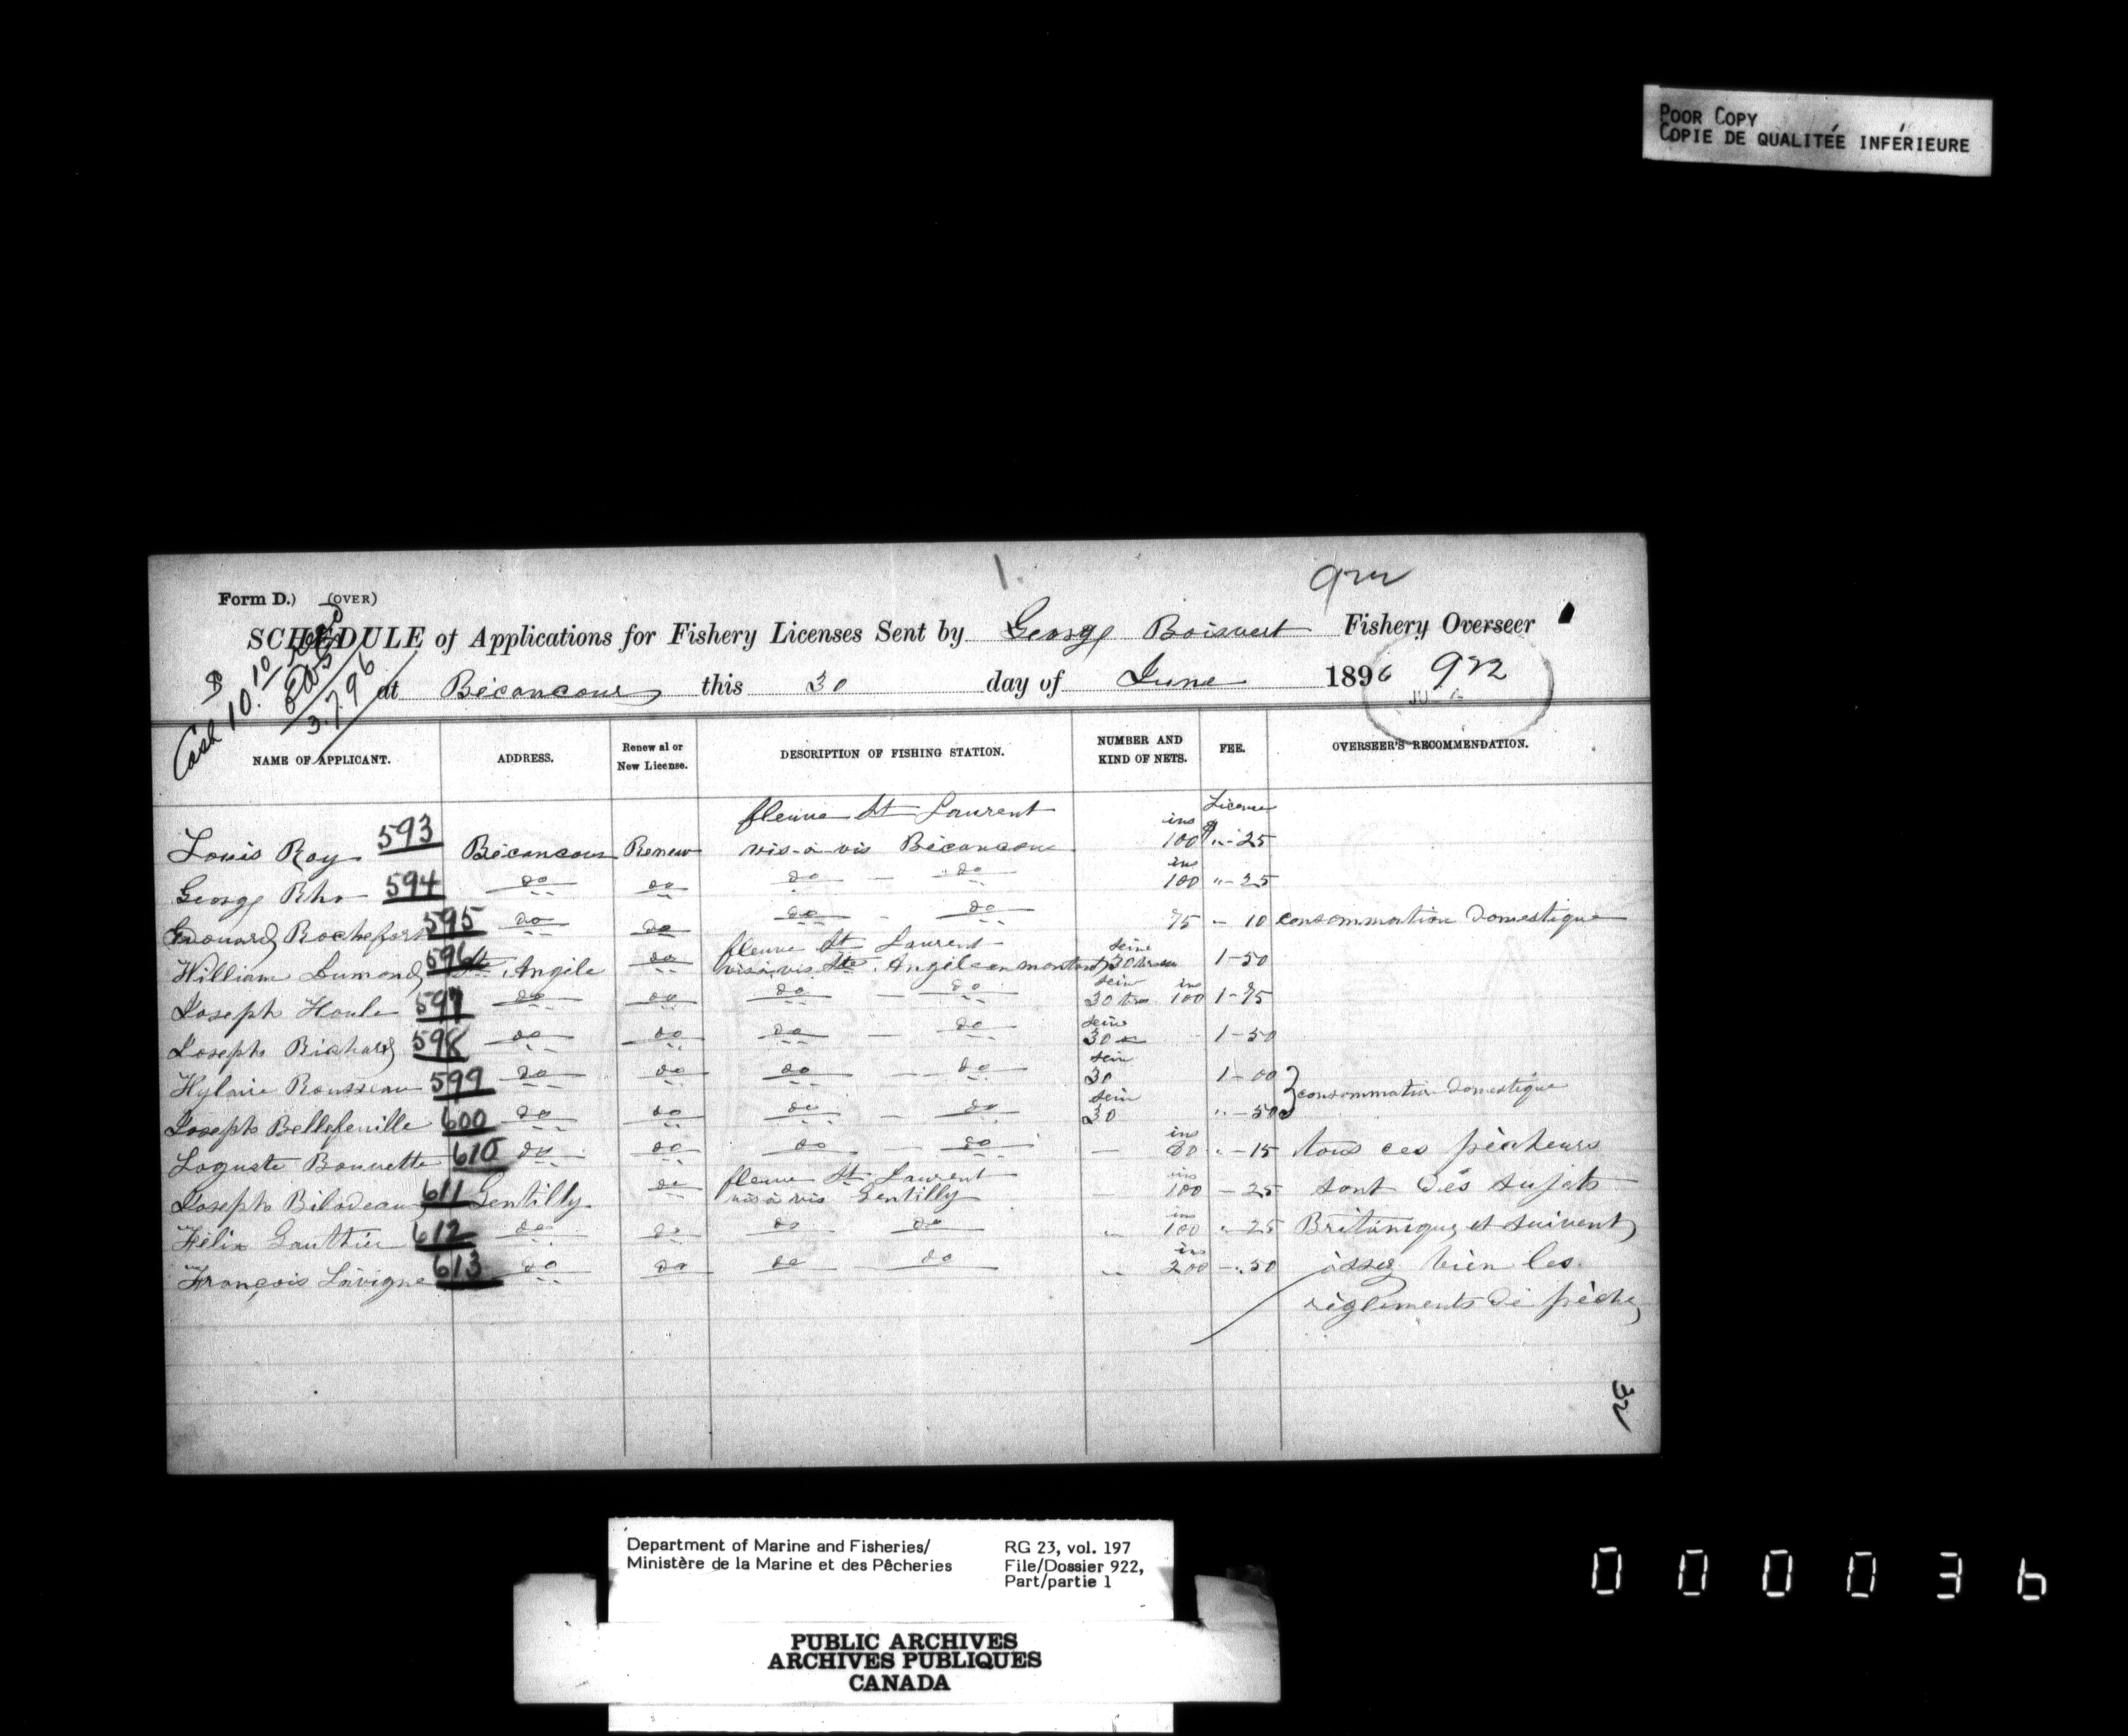 POOR COPY
COPIE DE QUALITÉE INFÉRIEURE
1.
922
Form D.) (OVER)
SCHEDULE of Applications for Fishery Licenses Sent by George Boisvert Fishery Overseer
at Bécancour this 30 day of June 1896 922
$
Cash 10.10
3.7.96
NAME OF APPLICANT. ADDRESS. Renewal or New License. DESCRIPTION OF FISHING STATION. NUMBER AND KIND OF NETS. FEE. OVERSEER'S RECOMMENDATION.
fleuve St Laurent ins License
Louis Roy 593 Bécancour Renew vis-à-vis Bécancour 100 $ "-25
ins
George Rho 594 do do do - do 100 "-25
Edouard Rochefort 595 do do do - do 75 - 10 consommation domestique
fleuve St Laurent seine
William Dumond 596 Ste Angèle do vis à vis Ste Angèle en montant 30 1-50
seine ins
Joseph Houle 597 do do do - do 30 100 1-75
seine
Joseph Richard 598 do do do - do 30 1-50
sein
Hylaire Rousseau 599 do do do - do 30 1-00
sein consommation domestique
Joseph Bellefeuille 600 do do do - do 30 "-50
ins
Loguste Bourette 610 do do do - do 80 "-15 tous ces pècheurs
fleuve St Laurent ins
Joseph Bilodeau 611 Gentilly do vis à vis Gentilly 100 - 25 sont dés sujets
ins
Félix Gauthier 612 do do do do " 100 "-25 Britanique et suivent
ins
François Lavigne 613 do do do do " 200 -"50 assez bien les
règlements de pèche
32
Department of Marine and Fisheries/ RG 23, vol. 197
Ministère de la Marine et des Pêcheries File/Dossier 922,
Part/partie 1
PUBLIC ARCHIVES
ARCHIVES PUBLIQUES
CANADA
000036